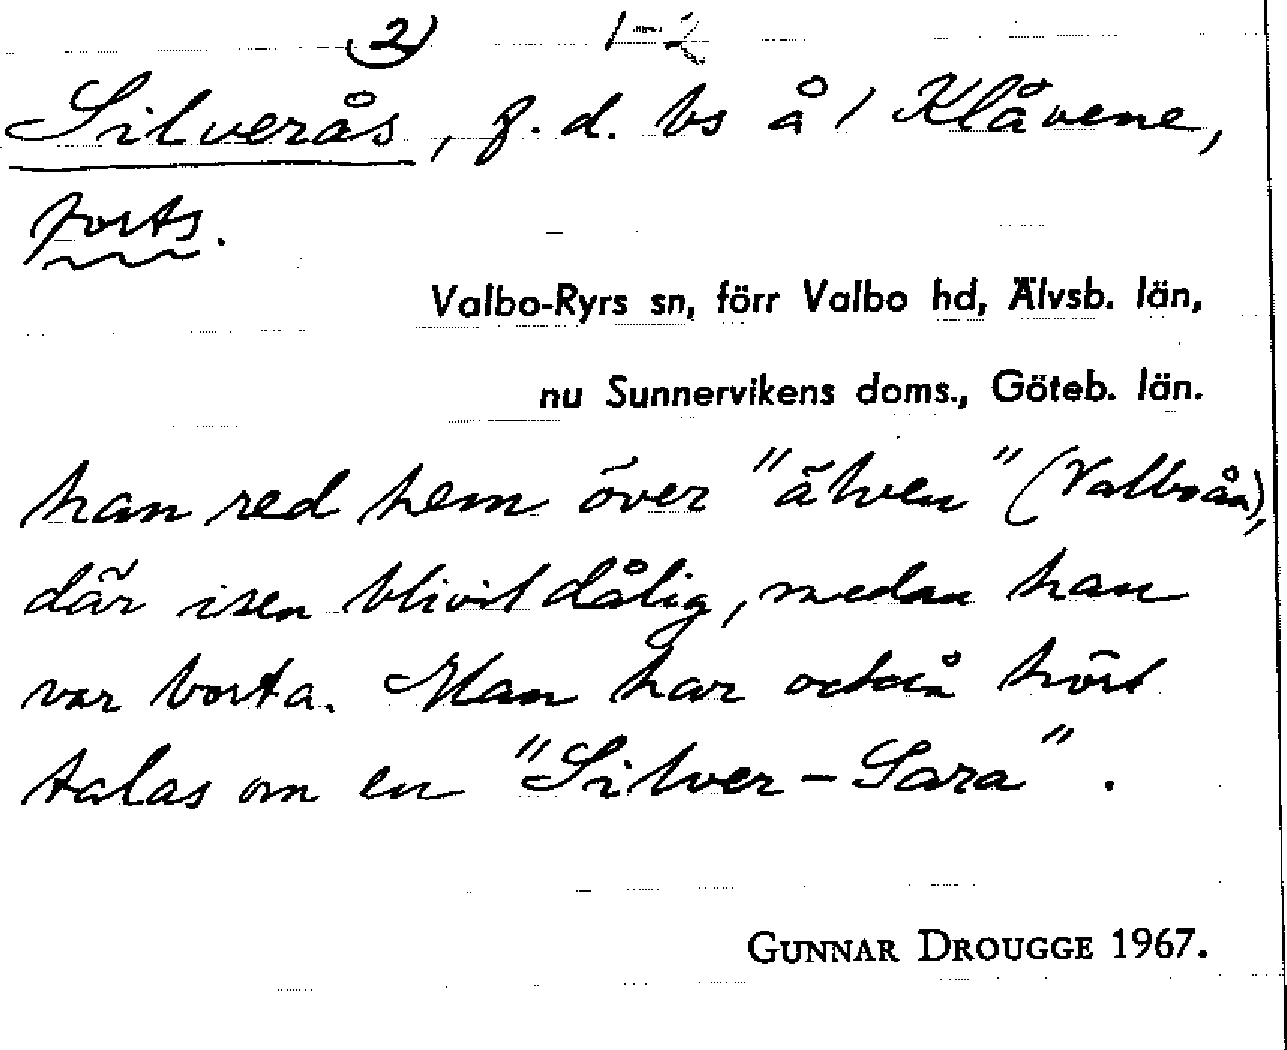 (2) 1-2
Silverås, f. d. bs å 1 Klåvene,
forts.
Valbo-Ryrs sn, förr Valbo hd, Älvsb. län,
nu Sunnervikens doms., Göteb. län.
han red hem över "älven" (Valboån),
där isen blivit dålig, medan han
var borta. Man har också hört
talas om en "Silver-Sara".
GUNNAR DROUGGE 1967.